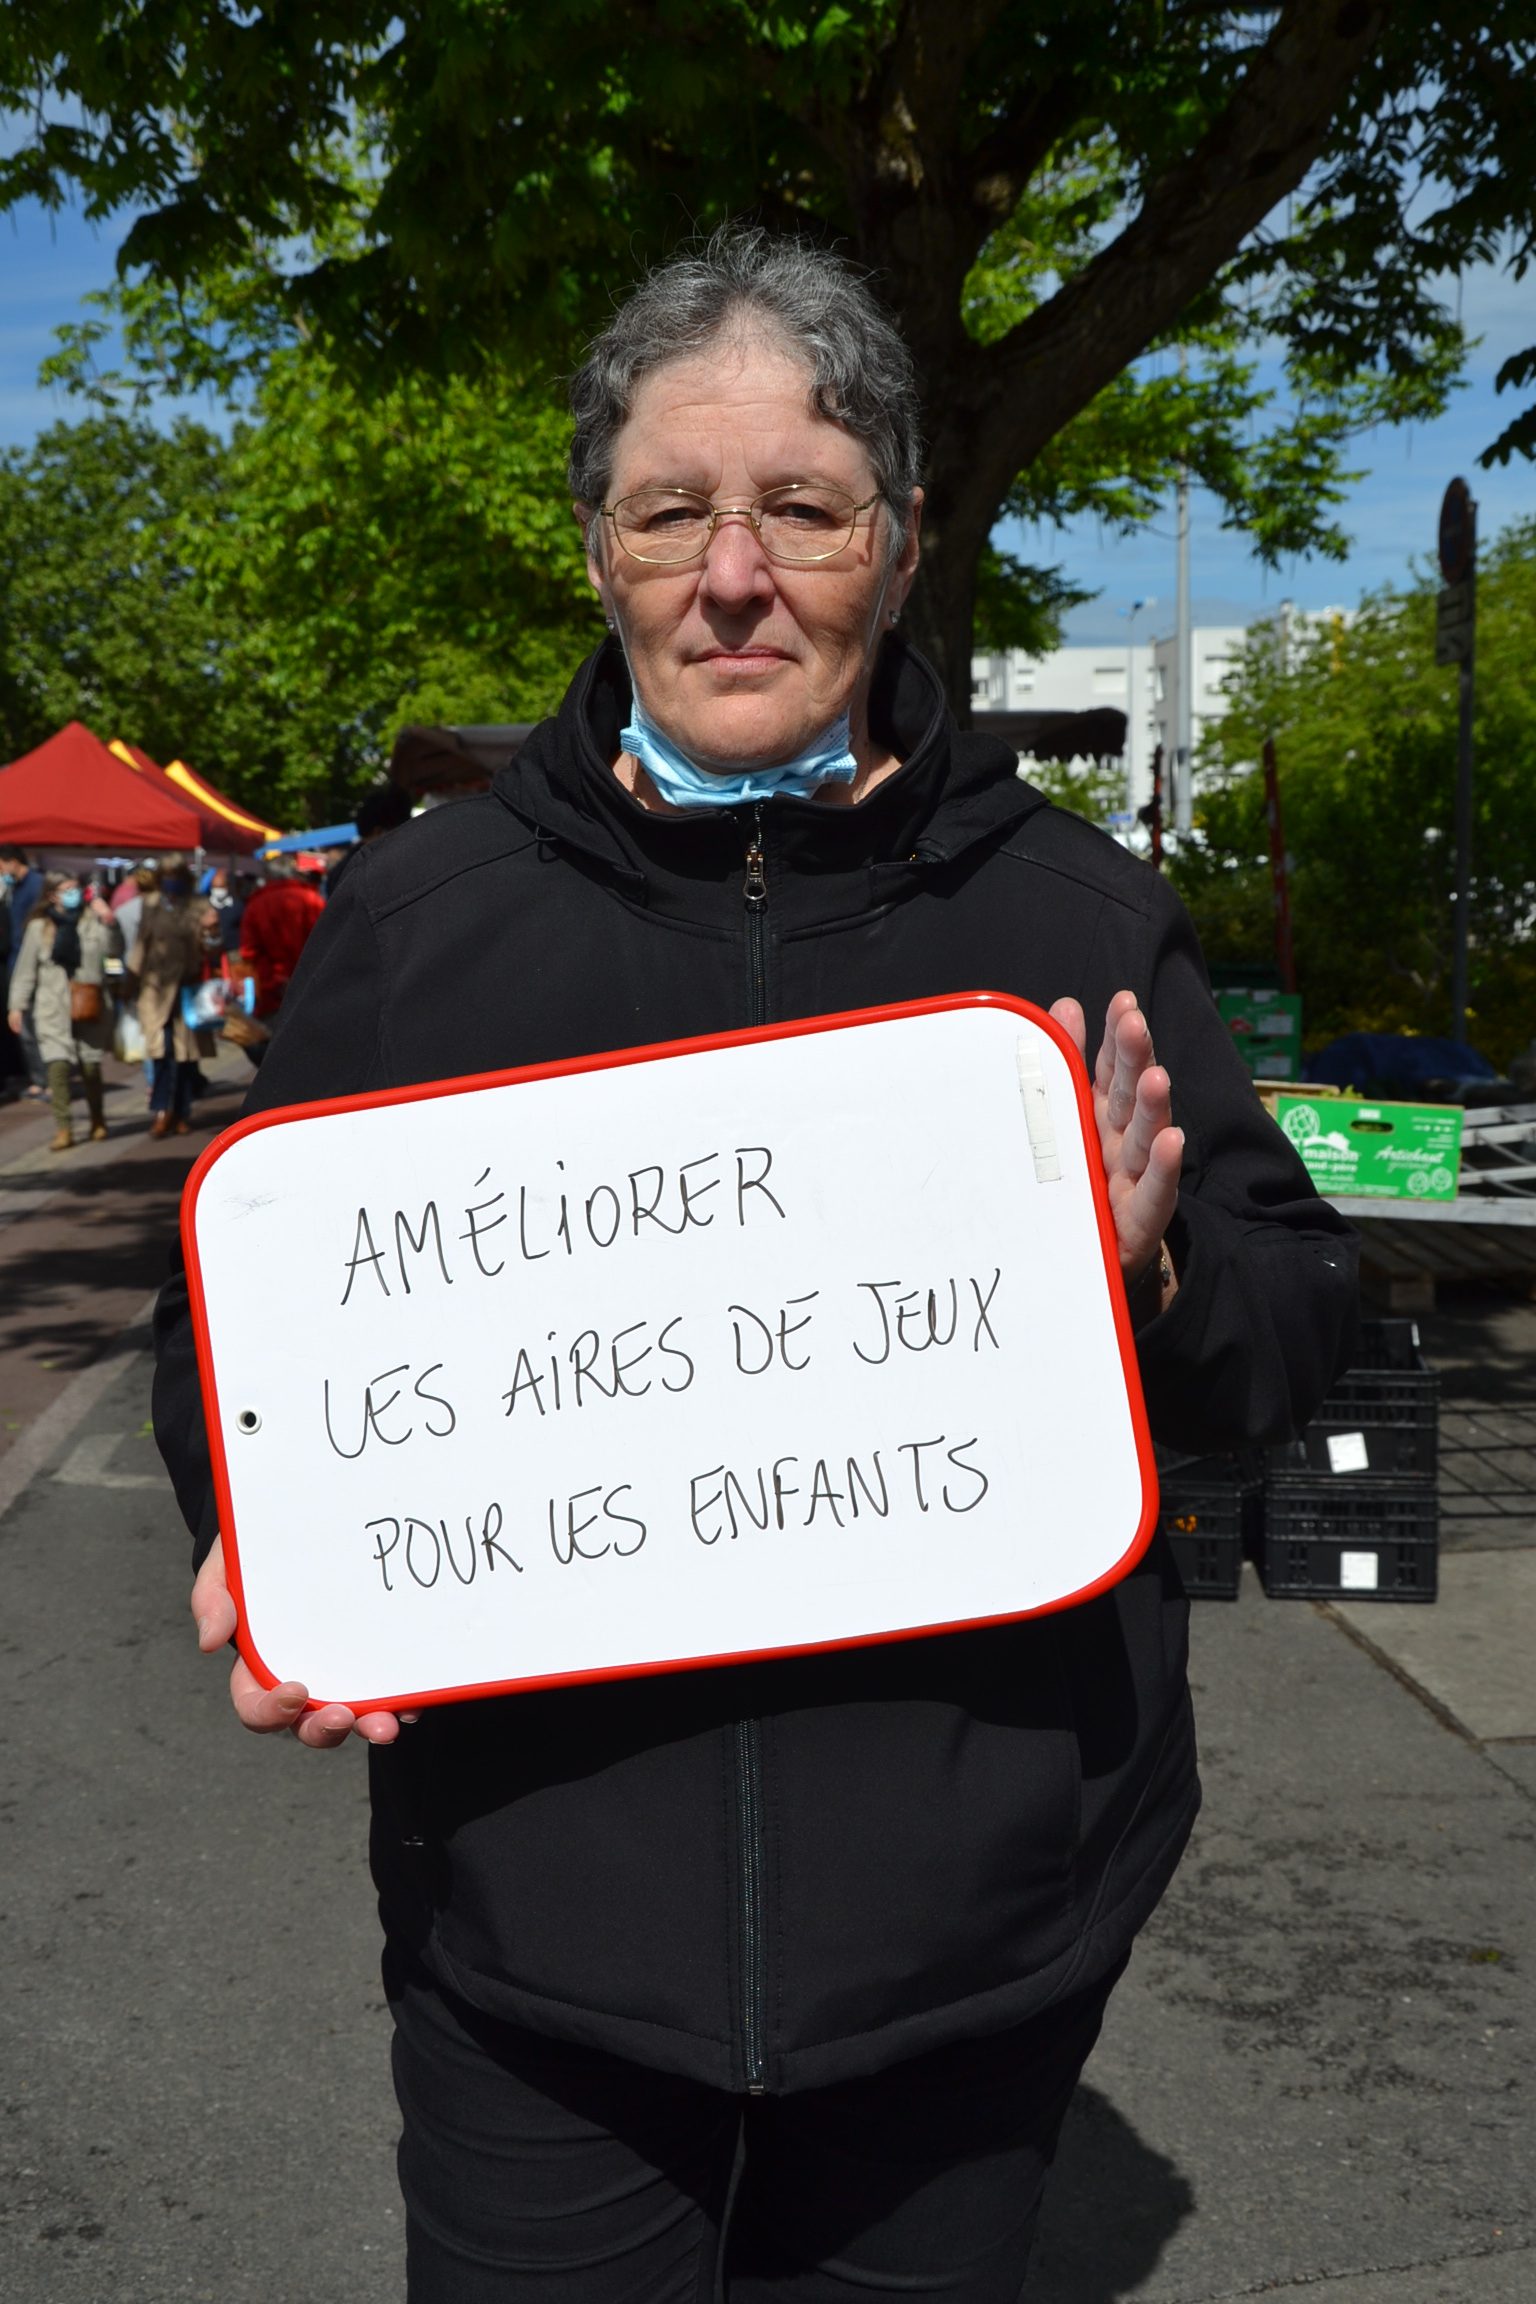 AMÉLIORER
LES AIRES DE JEUX
POUR LES ENFANTS
maison
Artichaut